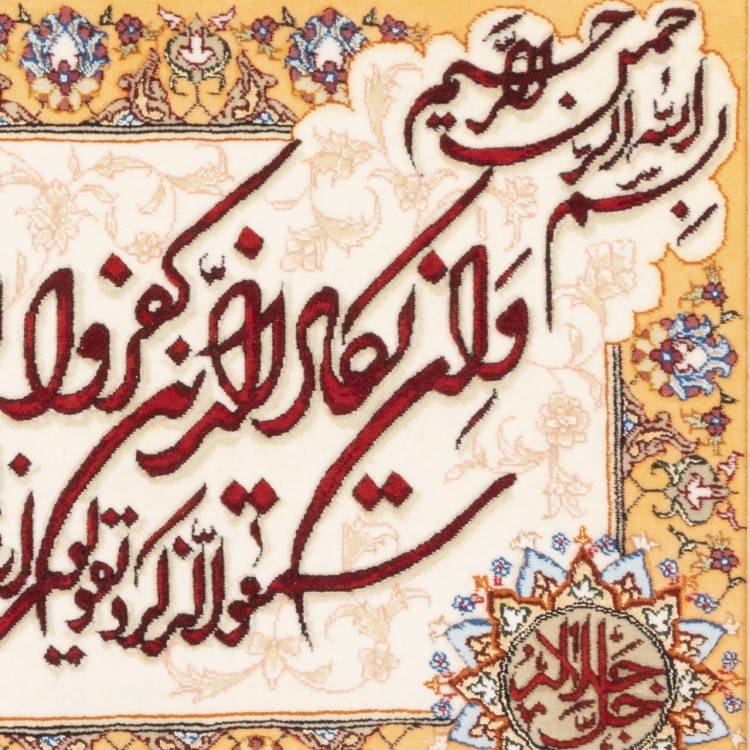 بسم الله الرحمن الرحیم
وان یکاد الذین کفروا
سمعوا الذکر و یقولون
جل جلاله